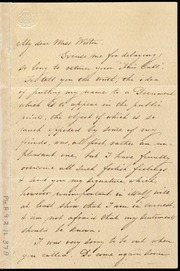 My dear Miss Weston
Excuse me for delaying
so long to return your "
To tell you the truth, the idea
of putting my name to a Document
which is to appear in the public
prints, the object of which is so
much opposed by some of my
friends, was at first rather an un-
pleasant one, but I have finally
overcome all such foolish feelings
& send you my signature which,
however, unimportant in itself will
at least show that I am in earnest,
& am not afraid that my sentiments
should be known.
I was very sorry to be out when
you called. Do come again soon